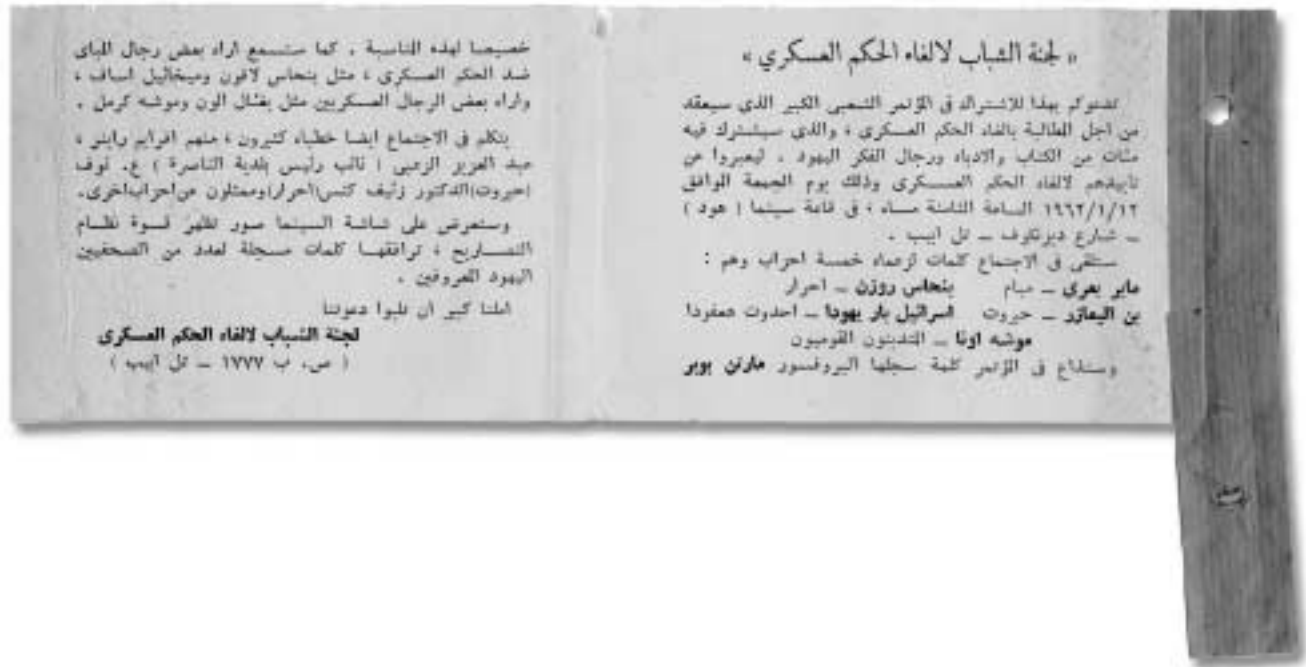 « لجنة الشباب لالغاء الحكم العسكري »
ندعوكم بهذا للاشتراك في المؤتمر الشعبي الكبير الذي سيعقد
من اجل المطالبة بالغاء الحكم العسكري ، والذي سيشترك فيه
مئات من الكتاب والادباء ورجال الفكر اليهود . ليعبروا عن
تاييدهم لالغاء الحكم العسكري وذلك يوم الجمعة الموافق
١٩٦٢/١/١٢ الساعة الثامنة مساء ، في قاعة سينما ( هود )
ــ شارع ديزنكوف ــ تل ابيب .
ستلقى في الاجتماع كلمات لزعماء خمسة احزاب وهم :
مابر يعرى ــ مبام بنحاس روزن ــ احرار
بن اليعازر ــ حيروت اسرائيل بار يهودا ــ احدوت هعفودا
موشه اونا ــ المتدينون القوميون
وستذاع في المؤتمر كلمة سجلها البروفسور مارتن بوبر
خصيصا لهذه المناسبة . كما ستسمع اراء بعض رجال المباى
ضد الحكم العسكرى ، مثل بنحاس لافون وميخائيل اساف ،
واراء بعض الرجال العسكريين مثل يغئال الون وموشه كرمل .
يتكلم في الاجتماع ايضا خطباء كثيرون ، منهم افرايم راينر ،
عبد العزيز الزعبى ( نائب رئيس بلدية الناصرة ) ع. نوف
(حيروت)الدكتور زئيف كتس(احرار)وممثلون من احزاب اخرى.
وستعرض على شاشة السينما صور تظهر قسوة نظام
التصاريح ، ترافقها كلمات مسجلة لعدد من الصحفيين
اليهود المعروفين .
املنا كبير ان تلبوا دعوتنا
لجنة الشباب لالغاء الحكم العسكرى
( ص. ب ١٧٧٧ ــ تل ابيب )